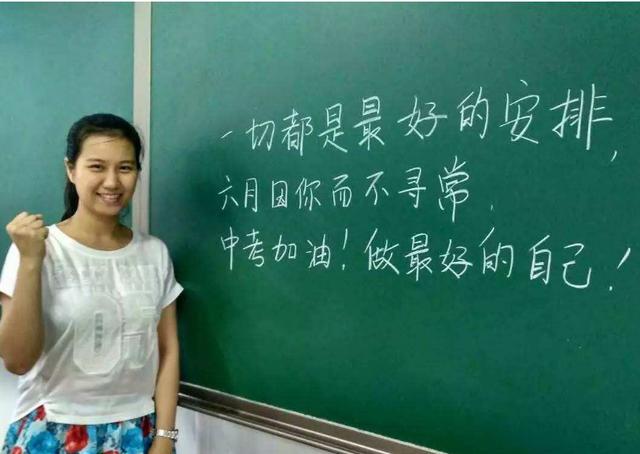 一切都是最好的安排，
六月因你而不寻常．
中考加油！做最好的自己！